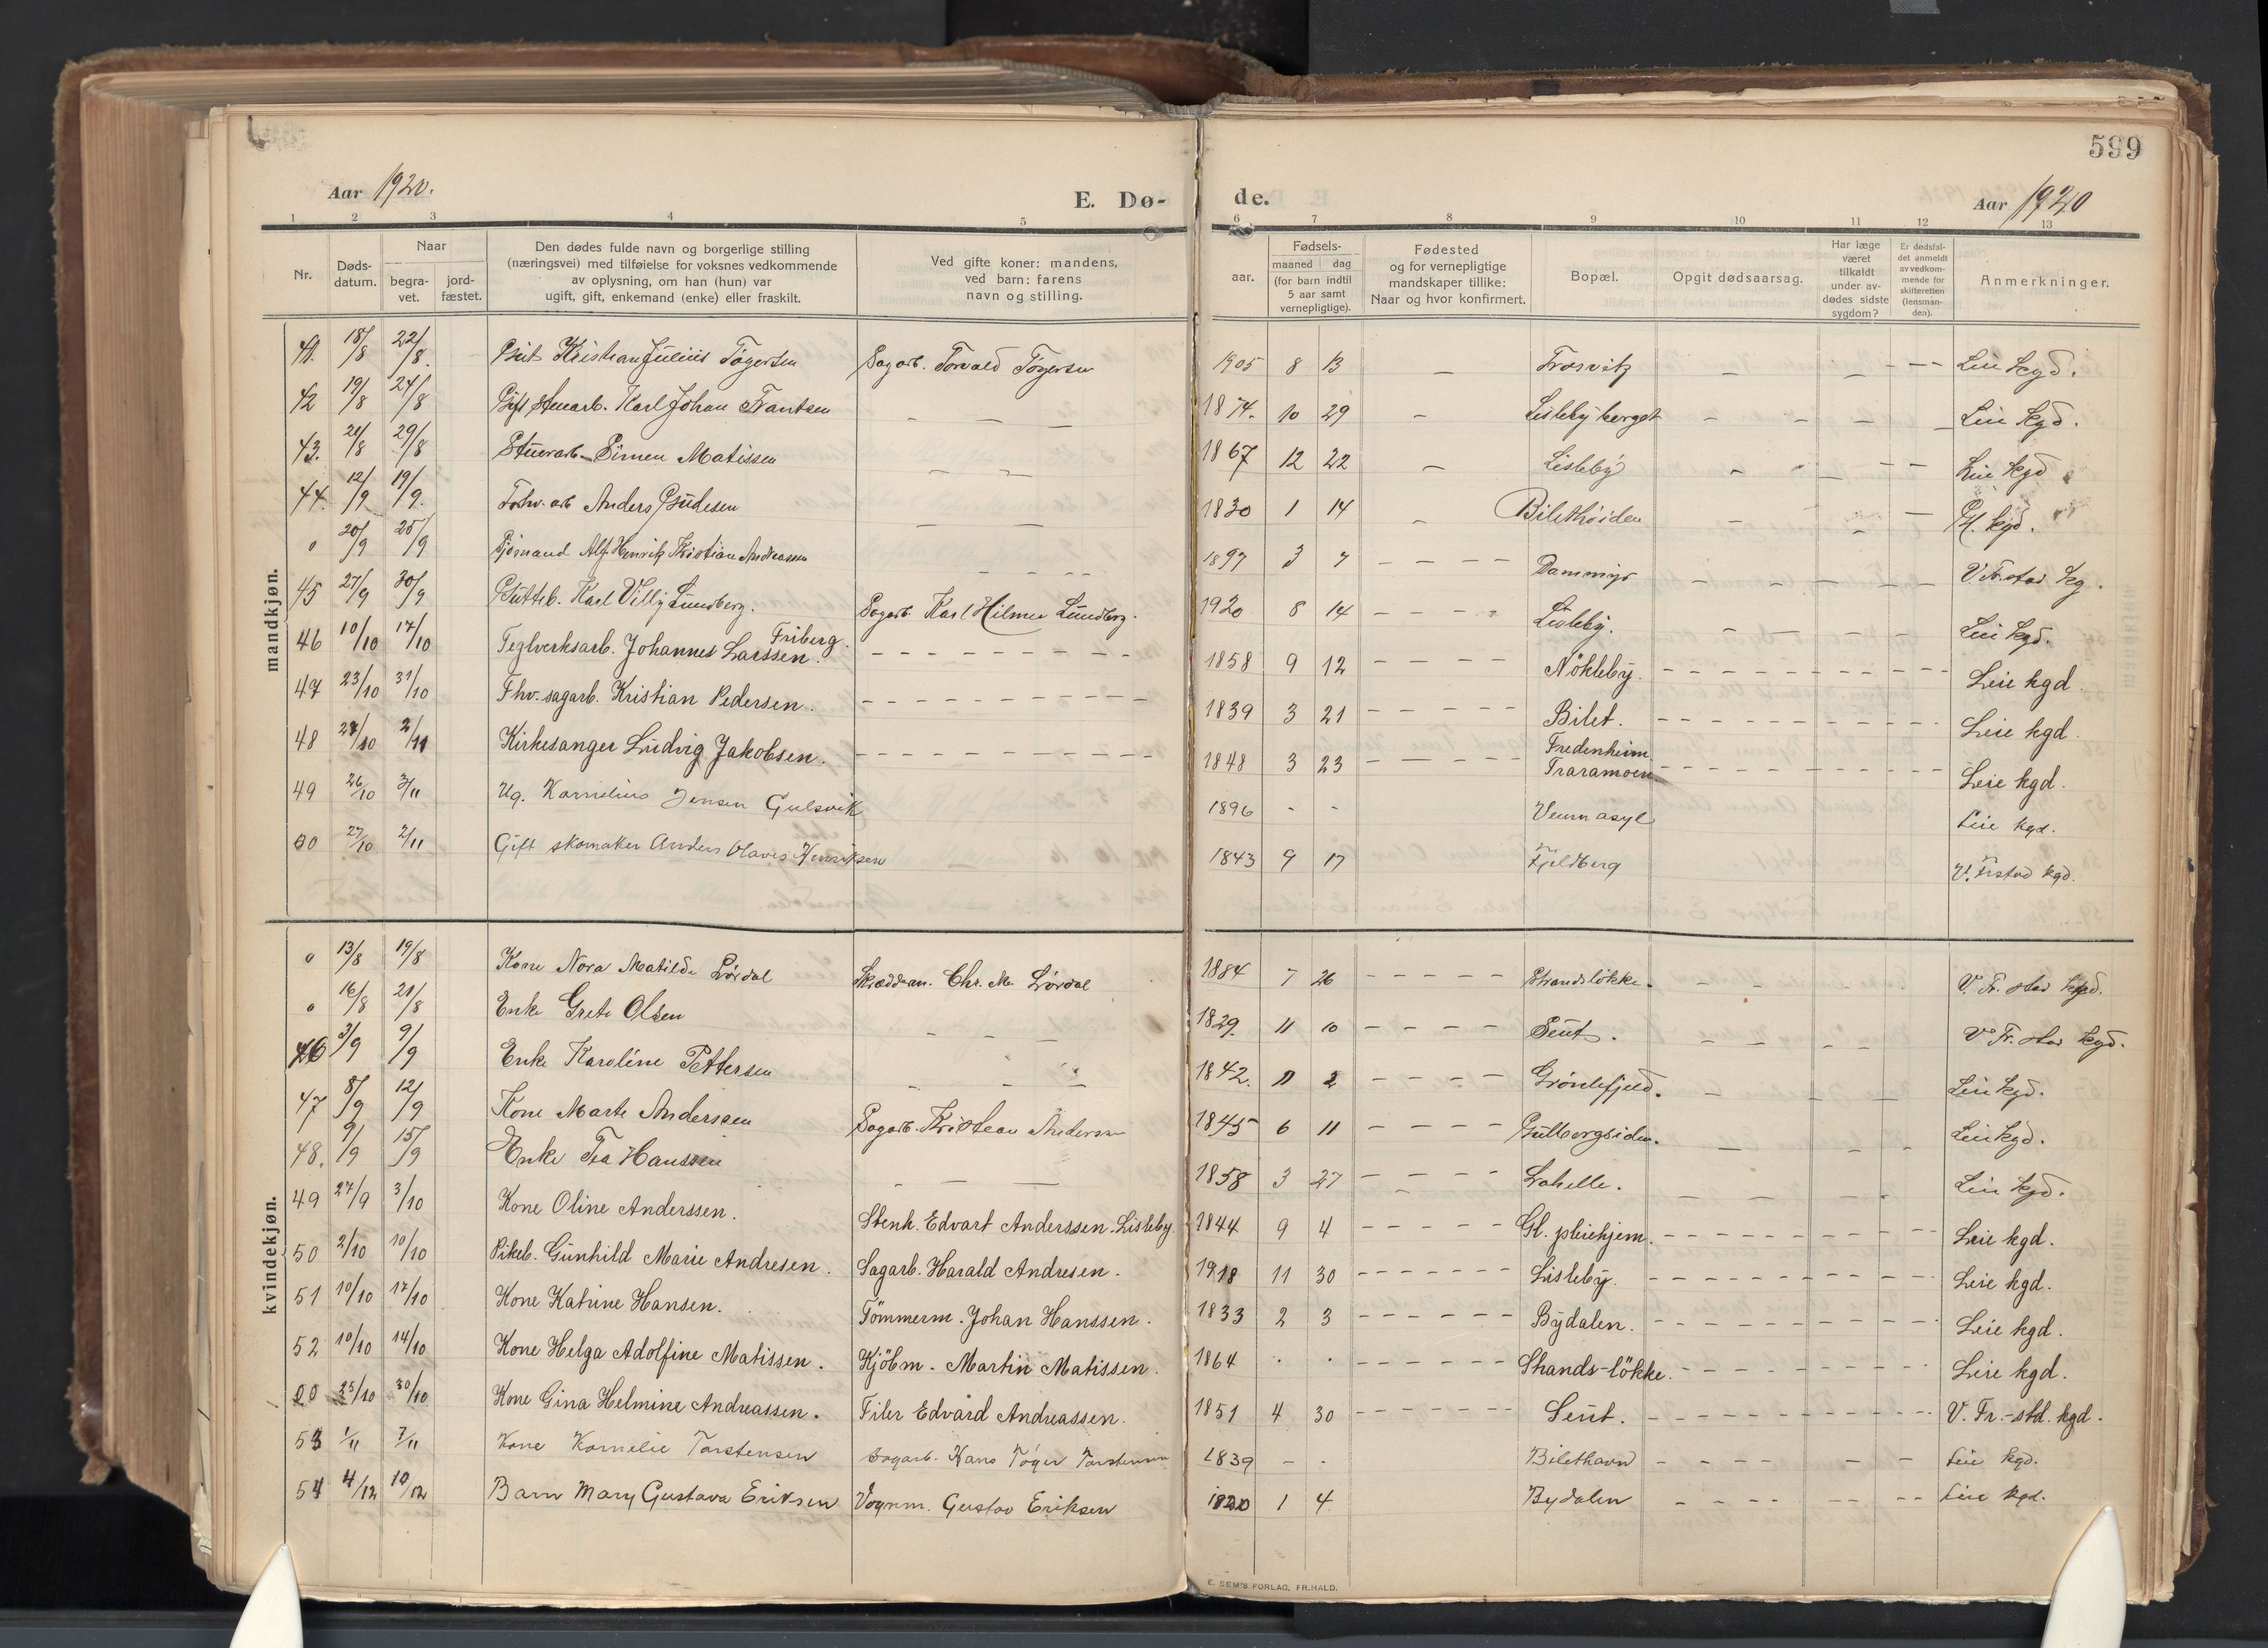 599
Aar 1920. E. Dø- de. Aar 1920
1 2 3 4 5 6 7 8 9 10 11 12 13
Nr. Døds-datum. Naar begra-vet. jord-fæstet. Den dødes fulde navn og borgerlige stilling (næringsvei) med tilføielse for voksnes vedkommende av oplysning, om han (hun) var ugift, gift, enkemand (enke) eller fraskilt. Ved gifte koner: mandens, ved barn: farens navn og stilling. aar. Fødsels- maaned dag (for barn indtil 5 aar samt vernepligtige). Fødested og for vernepligtige mandskaper tillike: Naar og hvor konfirmert. Bopæl. Opgit dødsaarsag. Har læge været tilkaldt under av-dødes sidste sygdom? Er dødsfal-det anmeldt av vedkom-mende for skifteretten (lensman-den). Anmerkninger.
mandkjøn.
41. 18/8 22/8. Gut Kristian Julius Tøgersen Sagarb. Torvald Tøgersen 1905 8 13 — Trosvik — — - — Leie kgd.
42 19/8 24/8 Gift Stenarb. Karl Johan Frantsen — — — 1874. 10 29 - Lislebyberget - - — — Leie kgd.
43. 21/8 29/8 Stuerarb. Simen Matissen — — 1867 12 22 — Lisleby - - - — Leie kgd
44. 12/9 19/9. Forhv. arb Anders Gudesen — — 1830 1 14 - Bilethøiden - - — Gl. kgd.
" 20/9 25/9 Sjømand Alf Henrik Kristian Andreassen - - - - 1897 3 7 - - - - Dammyr - - — — V. Fr.stad kg.
45 27/9 30/9 Gutteb. Karl Villy Lundberg. Sagarb. Karl Hilmer Lundberg. 1920 8 14 - - - - Lisleby. - - - - Leie kgd.
46 10/10 17/10 Teglverksarb. Johannes Larssen Friberg. - - - - - - - - - 1858 9 12 - - - - Nökleby. - - - - - - - - Leie kgd.
47 23/10 31/10 Fhv. sagarb. Kristian Pedersen. - - - - - - - - - 1839 3 21 - - - - Bilet. - - - - - - - - Leie kgd.
48 24/10 2/11 Kirkesanger Ludvig Jakobsen. - - - - - - - - - 1848 3 23 - - - - Fredenheim Traramoen - - - - - - - - Leie kgd.
49 26/10 3/11 Ug. Kornelius Jensen Gulsvik 1896 - - Veum asyl Leie kgd.
00 27/10 2/11 Gift skomaker Anders Olaves Henriksen 1843 9 17 Fjeldberg V. Frstad kgd.
kvindekjøn.
" 13/8 19/8 Kone Nora Matilde Lördal Skræddm. Chr. M. Lördal 1884 7 26 - - - - - Strandsløkke. - - - V. Fr. stad kgd.
" 16/8 21/8 Enke Grete Olsen - - - 1829. 11 10 - - - - Seut. - - - - V. Fr. stad kgd.
46 3/9 9/9 Enke Karoline Pettersen - - - 1842. 11 2 - - - - Grönlifjeld. - - - - Leie kgd.
47 8/9 12/9 Kone Marte Anderssen Sagarb. Kristian Andersen 1845 6 11 - - - - Gulbergsiden. - - - Leie kgd.
48. 9/9 15/9 Enke Tea Hanssen - — — 1858 3 27 - - - - Lahelle. - - - Leie kgd.
49 27/9 3/10 Kone Oline Anderssen. Stenh. Edvart Anderssen. Lisleby. 1844 9 4 - - - - - Gl. pleiehjem. - - - - - - - - Leie kgd.
50 2/10 10/10 Pikeb. Gunhild Marie Andresen. Sagarb. Harald Andresen. 1918 11 30 - - - - - - - Lisleby. - - - - - - - - Leie kgd.
51 10/10 17/10 Kone Katrine Hansen. Tömmerm. Johan Hanssen. 1833 2 3 - - - - - - Bydalen. - - - - - - - - Leie kgd.
52 10/10 14/10 Kone Helga Adolfine Matissen. Kjöbm. Martin Matissen. 1864 . . - - - - - - Strands-lökke. - - - - - - - Leie kgd.
00 25/10 30/10 Kone Gina Helmine Andreassen. Filer Edvard Andreassen. 1851 4 30 - - - - - - - Seut. - - - - - - - - V. Fr.-std. kgd.
53 1/11 7/11 Kone Kornelie Torstensen Sagarb. Hans Töger Torstensen 1839 - - Bilethavn - - - - - - Leie kgd.
54 4/12 10/12 Barn Mary Gustava Eriksen Vognm. Gustav Eriksen 1920 1 4 Bydalen - - - - - - - - Leie kgd.
E. SEM'S FORLAG, FR.HALD.